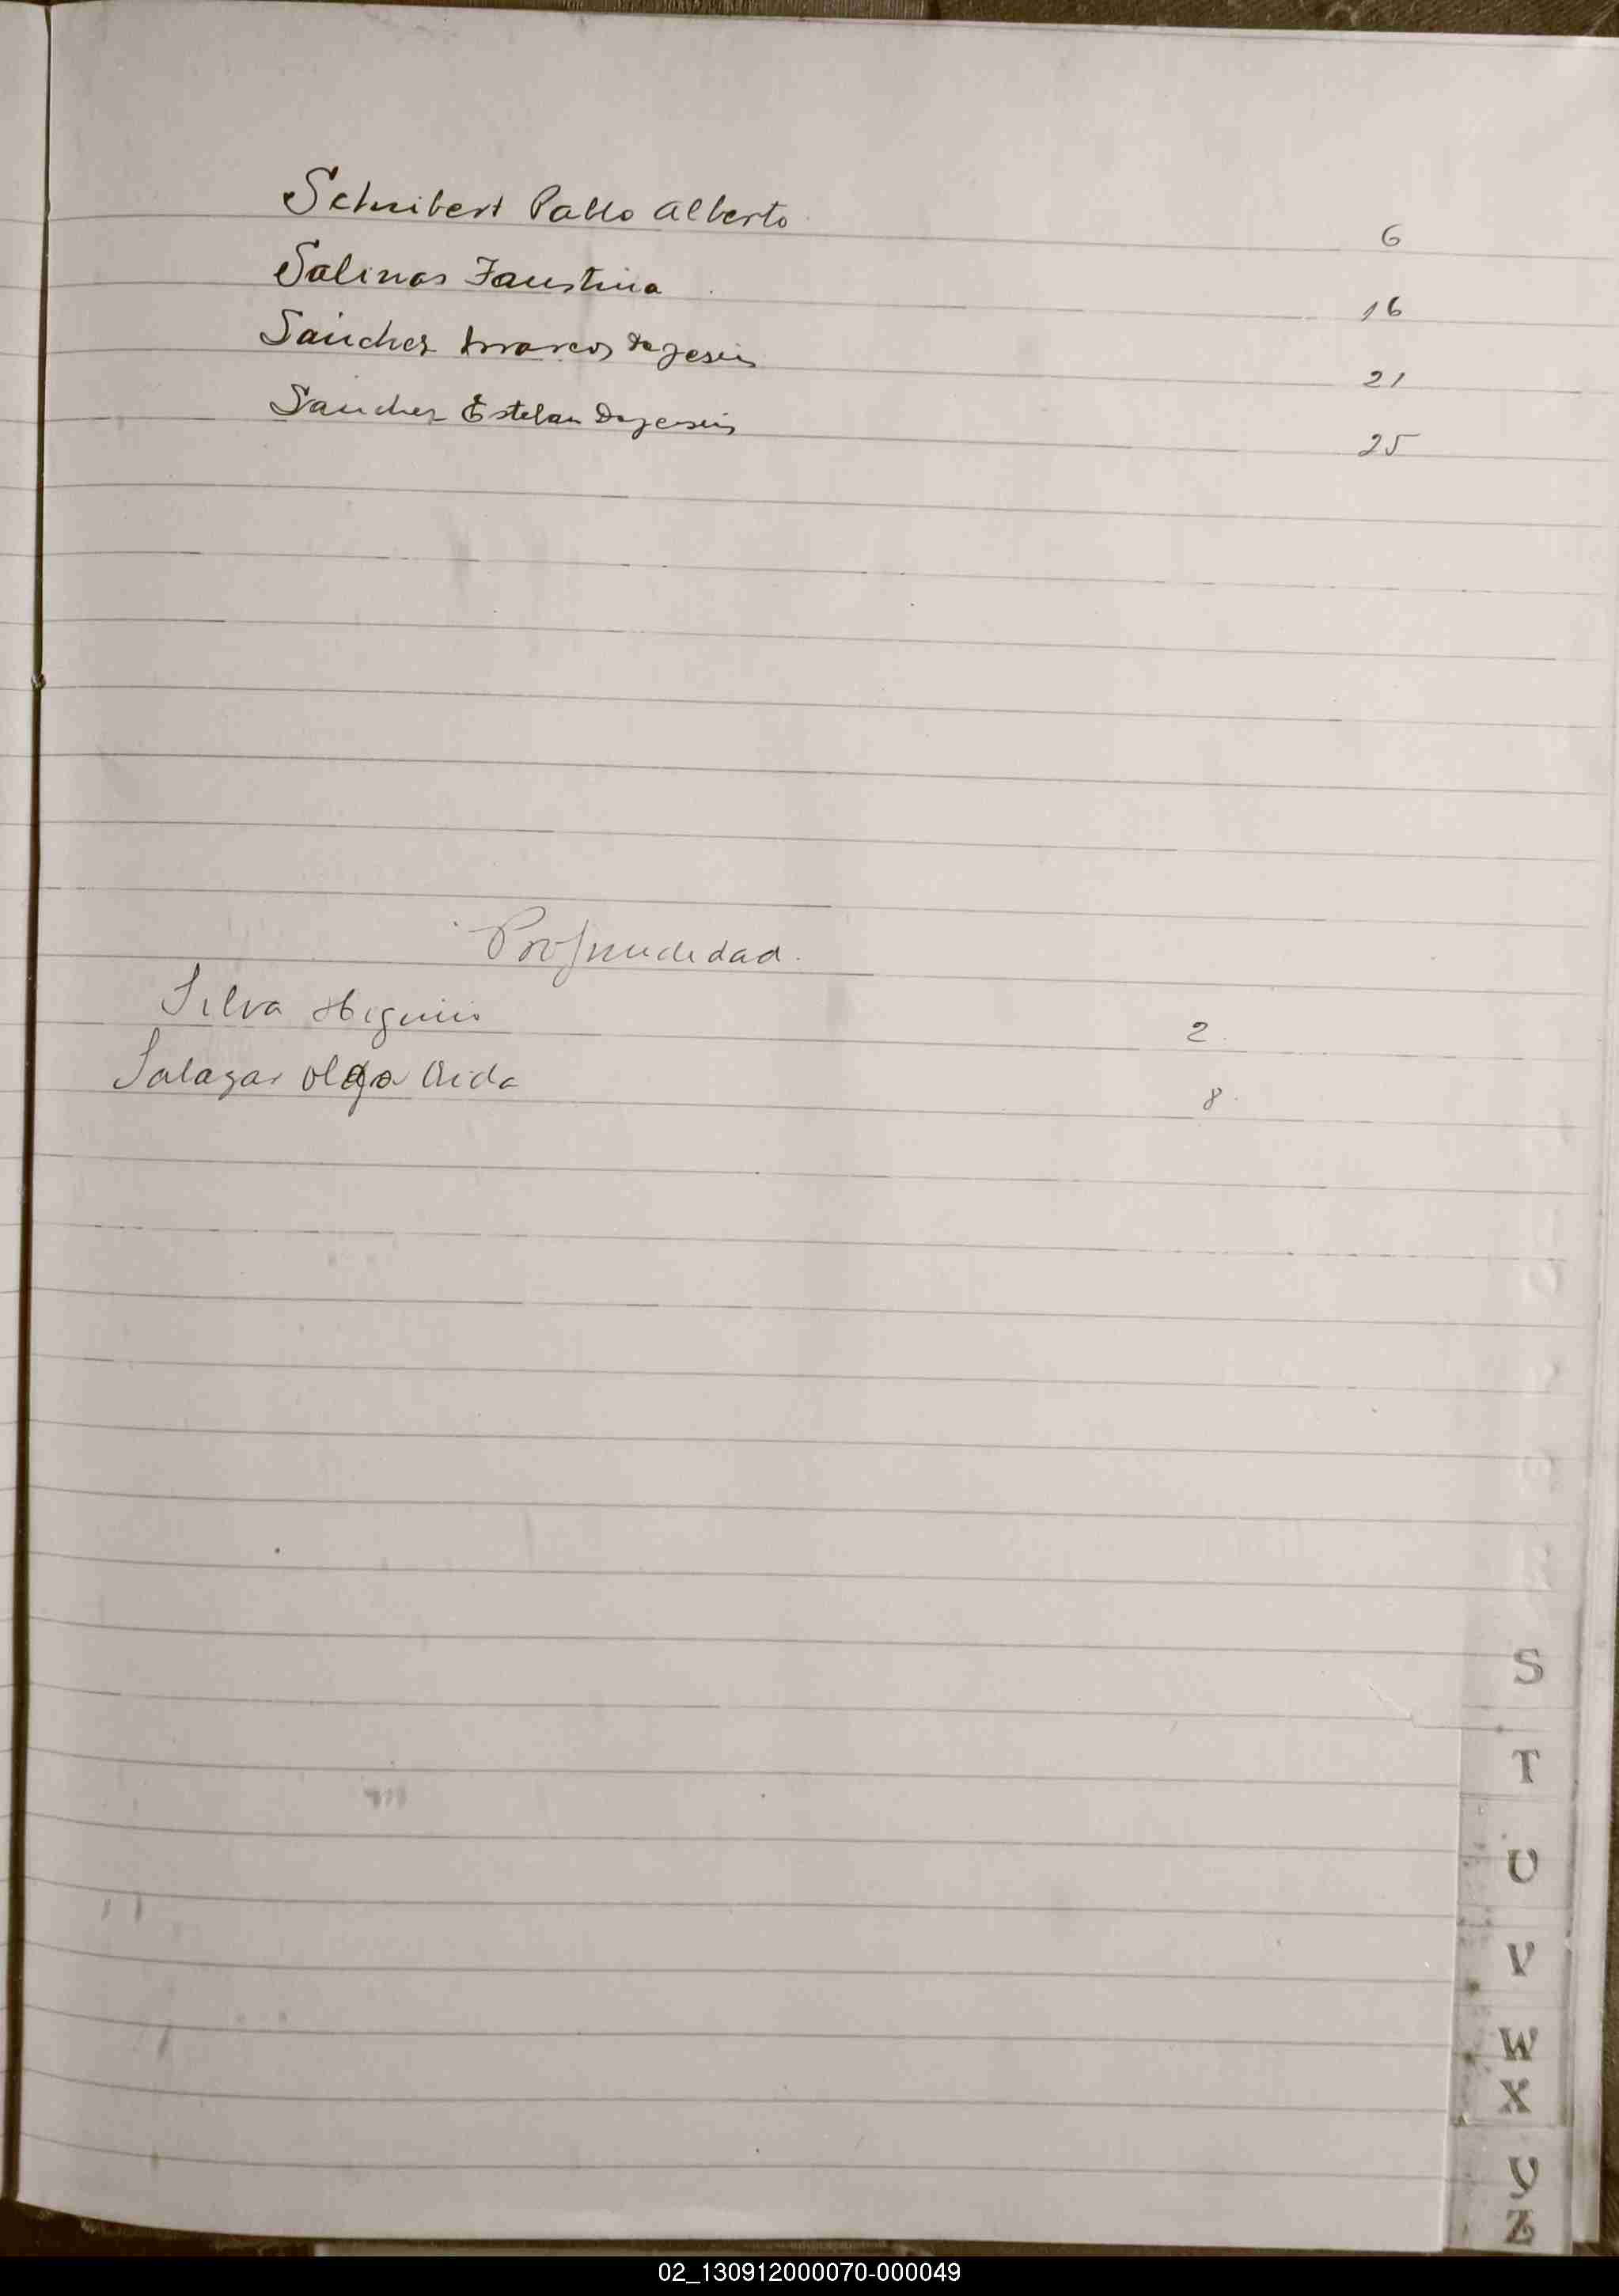 Schribert Pablo Alberto 6
Salinas Faustina 16
Sanchez Marcos De Jesus 21
Sanchez Esteban De Jesus 25
Profundidad.
Silva Higinio 2
Salazar Olga Aida 8
S
T
U
V
W
X
Y
Z
02_130912000070-000049